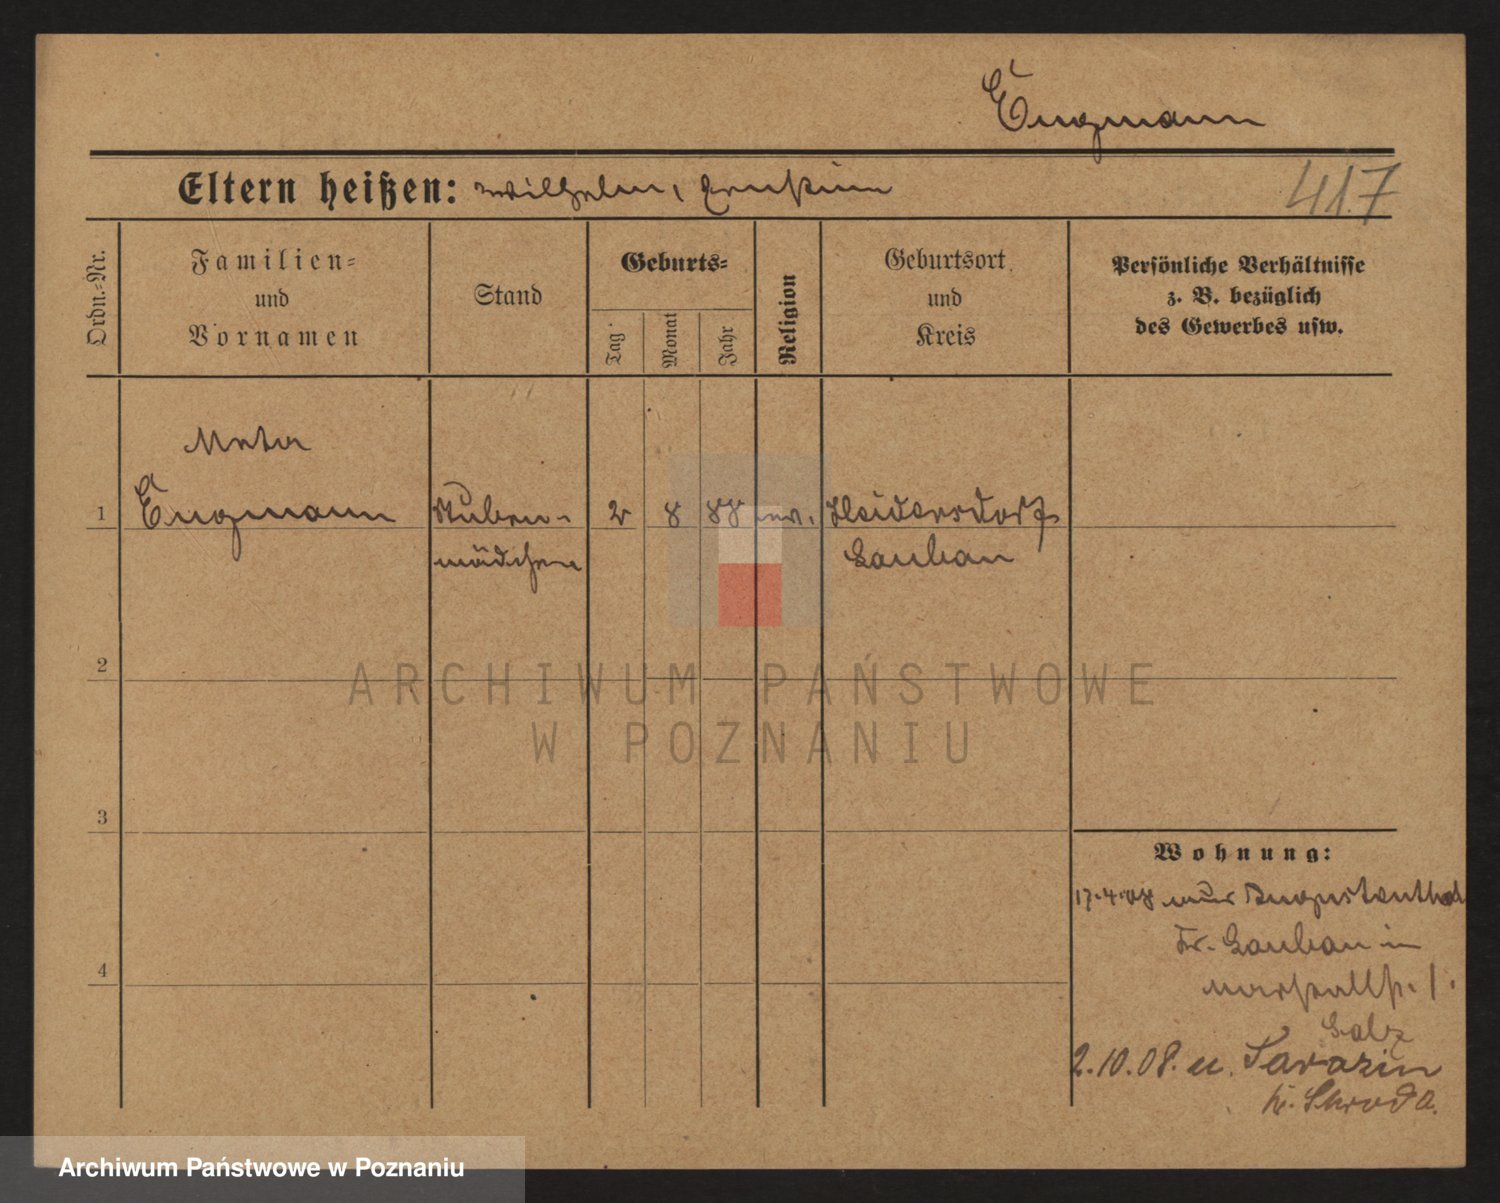 Engmann
Eltern heißen: Wilhelm, Ernstine
417
Ordn.-Nr.
Familien-
und
Vornamen
Stand
Geburts-
Tag
Monat
Jahr
Religion
Geburtsort
und
Kreis
Persönliche Verhältnisse
z. B. bezüglich
des Gewerbes usw.
Meta
1 Engmann Stuben- 2 8 88 ev. Heidersdorf
mädchen Lauban
2
ARCHIWUM PAŃSTWOWE
W POZNANIU
3
Wohnung:
17.4.08 Augustenthal
Kr. Lauban in
4
Marstallstr. 1.
2.10.08. n. Sarazin
Kr. Schroda.
Archiwum Państwowe w Poznaniu